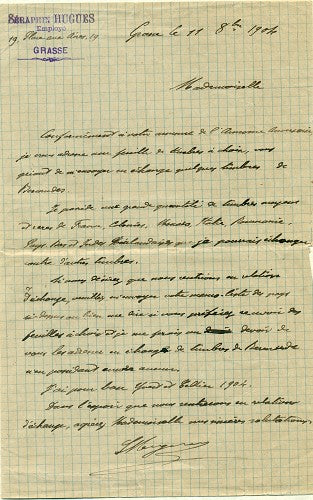 SÉRAPHIN HUGUES
Employé
19, Place aux Aires, 19
GRASSE
Grasse le 11 8bre 1904
Mademoiselle
Conformément à votre annonce de l'Annonce
je vous adresse une feuille de timbres à choix, vous
priant de m'envoyer en échange quelques timbres de
Bermudes.
Je possède une grande quantité de timbres moyens
et rares de France, Colonies, Monaco, Italie, Roumanie
Pays Bas et Indes Néerlandaises que je pourrais échanger
contre d'autres timbres.
Si vous désirez que nous entrions en relations
d'échange, veuillez m'envoyer votre liste des pays
ci-dessus ou bien me dire si vous préférez recevoir des
feuilles à choix et je me ferais un devoir de
vous les adresser en échange de timbres de Bermude
n'en possédant aucun.
J'ai pour base Yvert et Tellier 1904.
Dans l'espoir que nous entrerons en relation
d'échange, agréez Mademoiselle mes sincères salutations.
SHugues